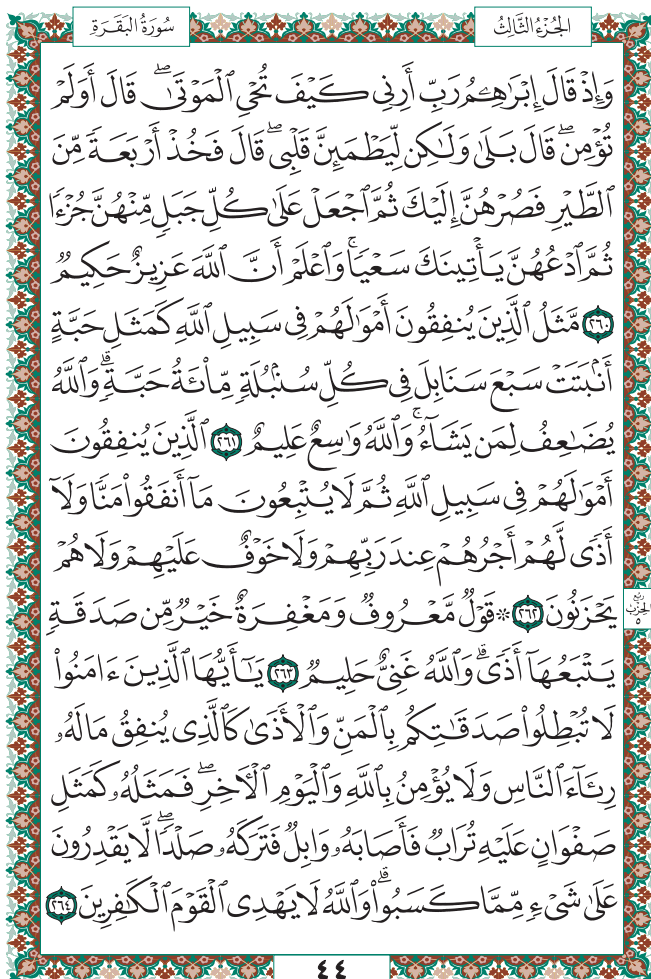 الجُزْءُ الثَّالِثُ
سُورَةُ البَقَرَةِ
وَإِذْ قَالَ إِبْرَٰهِـۧمُ رَبِّ أَرِنِى كَيْفَ تُحْىِ ٱلْمَوْتَىٰ ۖ قَالَ أَوَلَمْ
تُؤْمِن ۖ قَالَ بَلَىٰ وَلَـٰكِن لِّيَطْمَئِنَّ قَلْبِى ۖ قَالَ فَخُذْ أَرْبَعَةً مِّنَ
ٱلطَّيْرِ فَصُرْهُنَّ إِلَيْكَ ثُمَّ ٱجْعَلْ عَلَىٰ كُلِّ جَبَلٍ مِّنْهُنَّ جُزْءًا
ثُمَّ ٱدْعُهُنَّ يَأْتِينَكَ سَعْيًا ۚ وَٱعْلَمْ أَنَّ ٱللَّهَ عَزِيزٌ حَكِيمٌ
٢٦٠ مَّثَلُ ٱلَّذِينَ يُنفِقُونَ أَمْوَٰلَهُمْ فِى سَبِيلِ ٱللَّهِ كَمَثَلِ حَبَّةٍ
أَنۢبَتَتْ سَبْعَ سَنَابِلَ فِى كُلِّ سُنۢبُلَةٍ مِّا۟ئَةُ حَبَّةٍ ۗ وَٱللَّهُ
يُضَـٰعِفُ لِمَن يَشَآءُ ۚ وَٱللَّهُ وَٰسِعٌ عَلِيمٌ ٢٦١ ٱلَّذِينَ يُنفِقُونَ
أَمْوَٰلَهُمْ فِى سَبِيلِ ٱللَّهِ ثُمَّ لَا يُتْبِعُونَ مَآ أَنفَقُوا۟ مَنًّا وَلَآ
أَذًى لَّهُمْ أَجْرُهُمْ عِندَ رَبِّهِمْ وَلَا خَوْفٌ عَلَيْهِمْ وَلَا هُمْ
يَحْزَنُونَ ٢٦٢ ۞ قَوْلٌ مَّعْرُوفٌ وَمَغْفِرَةٌ خَيْرٌ مِّن صَدَقَةٍ
رُبْع الحِزْب ٥
يَتْبَعُهَآ أَذًى ۗ وَٱللَّهُ غَنِىٌّ حَلِيمٌ ٢٦٣ يَـٰٓأَيُّهَا ٱلَّذِينَ ءَامَنُوا۟
لَا تُبْطِلُوا۟ صَدَقَـٰتِكُم بِٱلْمَنِّ وَٱلْأَذَىٰ كَٱلَّذِى يُنفِقُ مَالَهُۥ
رِئَآءَ ٱلنَّاسِ وَلَا يُؤْمِنُ بِٱللَّهِ وَٱلْيَوْمِ ٱلْـَٔاخِرِ ۖ فَمَثَلُهُۥ كَمَثَلِ
صَفْوَانٍ عَلَيْهِ تُرَابٌ فَأَصَابَهُۥ وَابِلٌ فَتَرَكَهُۥ صَلْدًا ۖ لَّا يَقْدِرُونَ
عَلَىٰ شَىْءٍ مِّمَّا كَسَبُوا۟ ۗ وَٱللَّهُ لَا يَهْدِى ٱلْقَوْمَ ٱلْكَـٰفِرِينَ ٢٦٤
٤٤